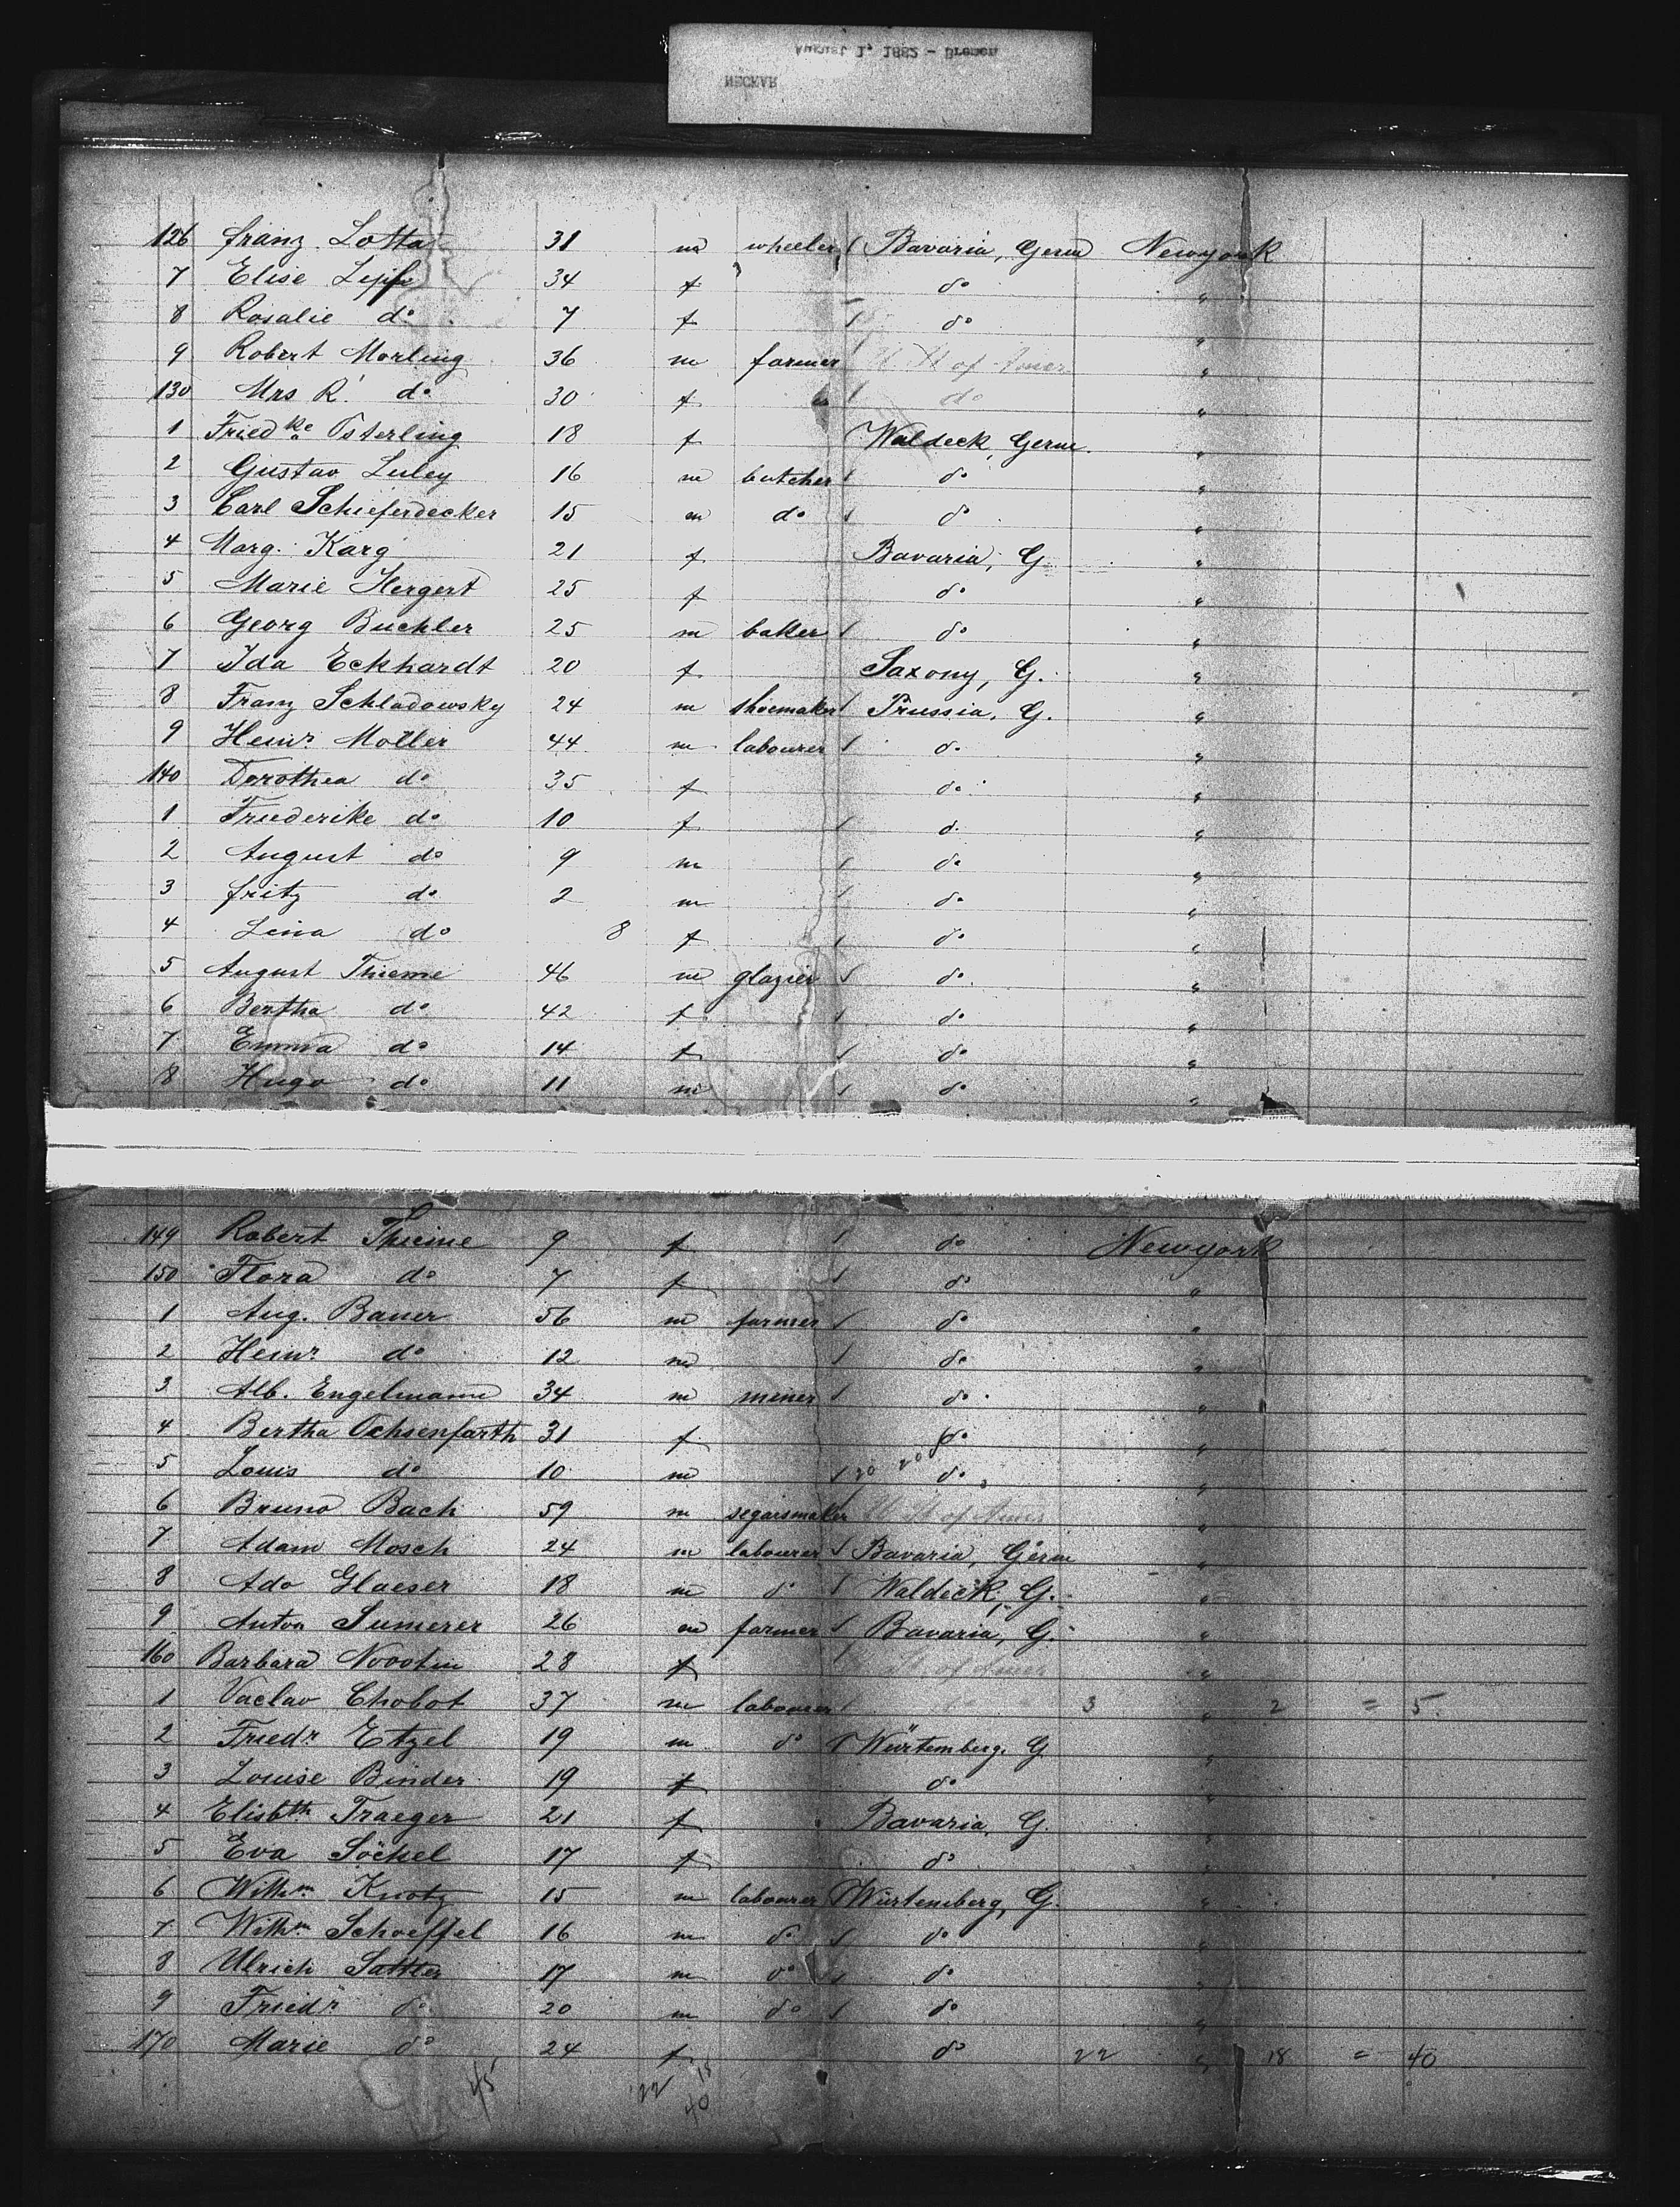 August 1, 1882 - Bremen
NECKAR
126 Franz Lotta 31 m wheeler Bavaria, Germ Newyork
7 Elise 34 f do "
8 Rosalie do 7 f do "
9 Robert Morling 36 m farmer U St of Amer "
130 Mrs R. do 30 f do "
1 Friedke Osterling 18 f Waldeck, Germ. "
2 Gustav Luley 16 m butcher do "
3 Carl Schieferdecker 15 m do do "
4 Marg. Karg 21 f Bavaria, G. "
5 Marie Hergert 25 f do "
6 Georg Buchler 25 m baker do "
7 Ida Eckhardt 20 f Saxony, G. "
8 Franz Schladowsky 24 m shoemaker Prussia, G. "
9 Heinr. Moller 44 m labourer do "
140 Dorothea do 35 f do "
1 Friederike do 10 f do "
2 August do 9 m do "
3 Fritz do 2 m do "
4 Lina do 8 f do "
5 August Thieme 46 m glazier do "
6 Bertha do 42 f do "
7 Emma do 14 f do "
8 Hugo do 11 m do "
149 Robert Thieme 9 f do Newyork
150 Flora do 7 f do "
1 Aug. Bauer 56 m farmer do "
2 Heinr. do 12 m do "
3 Alb. Engelmann 34 m miner do "
4 Bertha Ochsenfarth 31 f do "
5 Louis do 10 m 20 20 do "
6 Bruno Bach 59 m segarsmaker U St of Amer "
7 Adam Mosch 24 m labourer Bavaria, Germ "
8 Ado Glaeser 18 m do Waldeck, G. "
9 Anton Sumerer 26 m farmer Bavaria, G. "
160 Barbara 28 f St. of Amer "
1 Vaclav Chobot 37 m labourer 3 " 2 = 5
2 Friedr. Etzel 19 m do Würtemberg, G "
3 Louise Binder 19 f do "
4 Elisbth Traeger 21 f Bavaria, G. "
5 Eva Söckel 17 f do "
6 Wilhm. Knotz 15 m labourer Würtemberg, G. "
7 Wilhm. Schoeffel 16 m do do "
8 Ulrich Sattler 17 m do do "
9 Friedr. do 20 m do do "
170 Marie do 24 f do 22 " 18 = 40
45 22 18
40